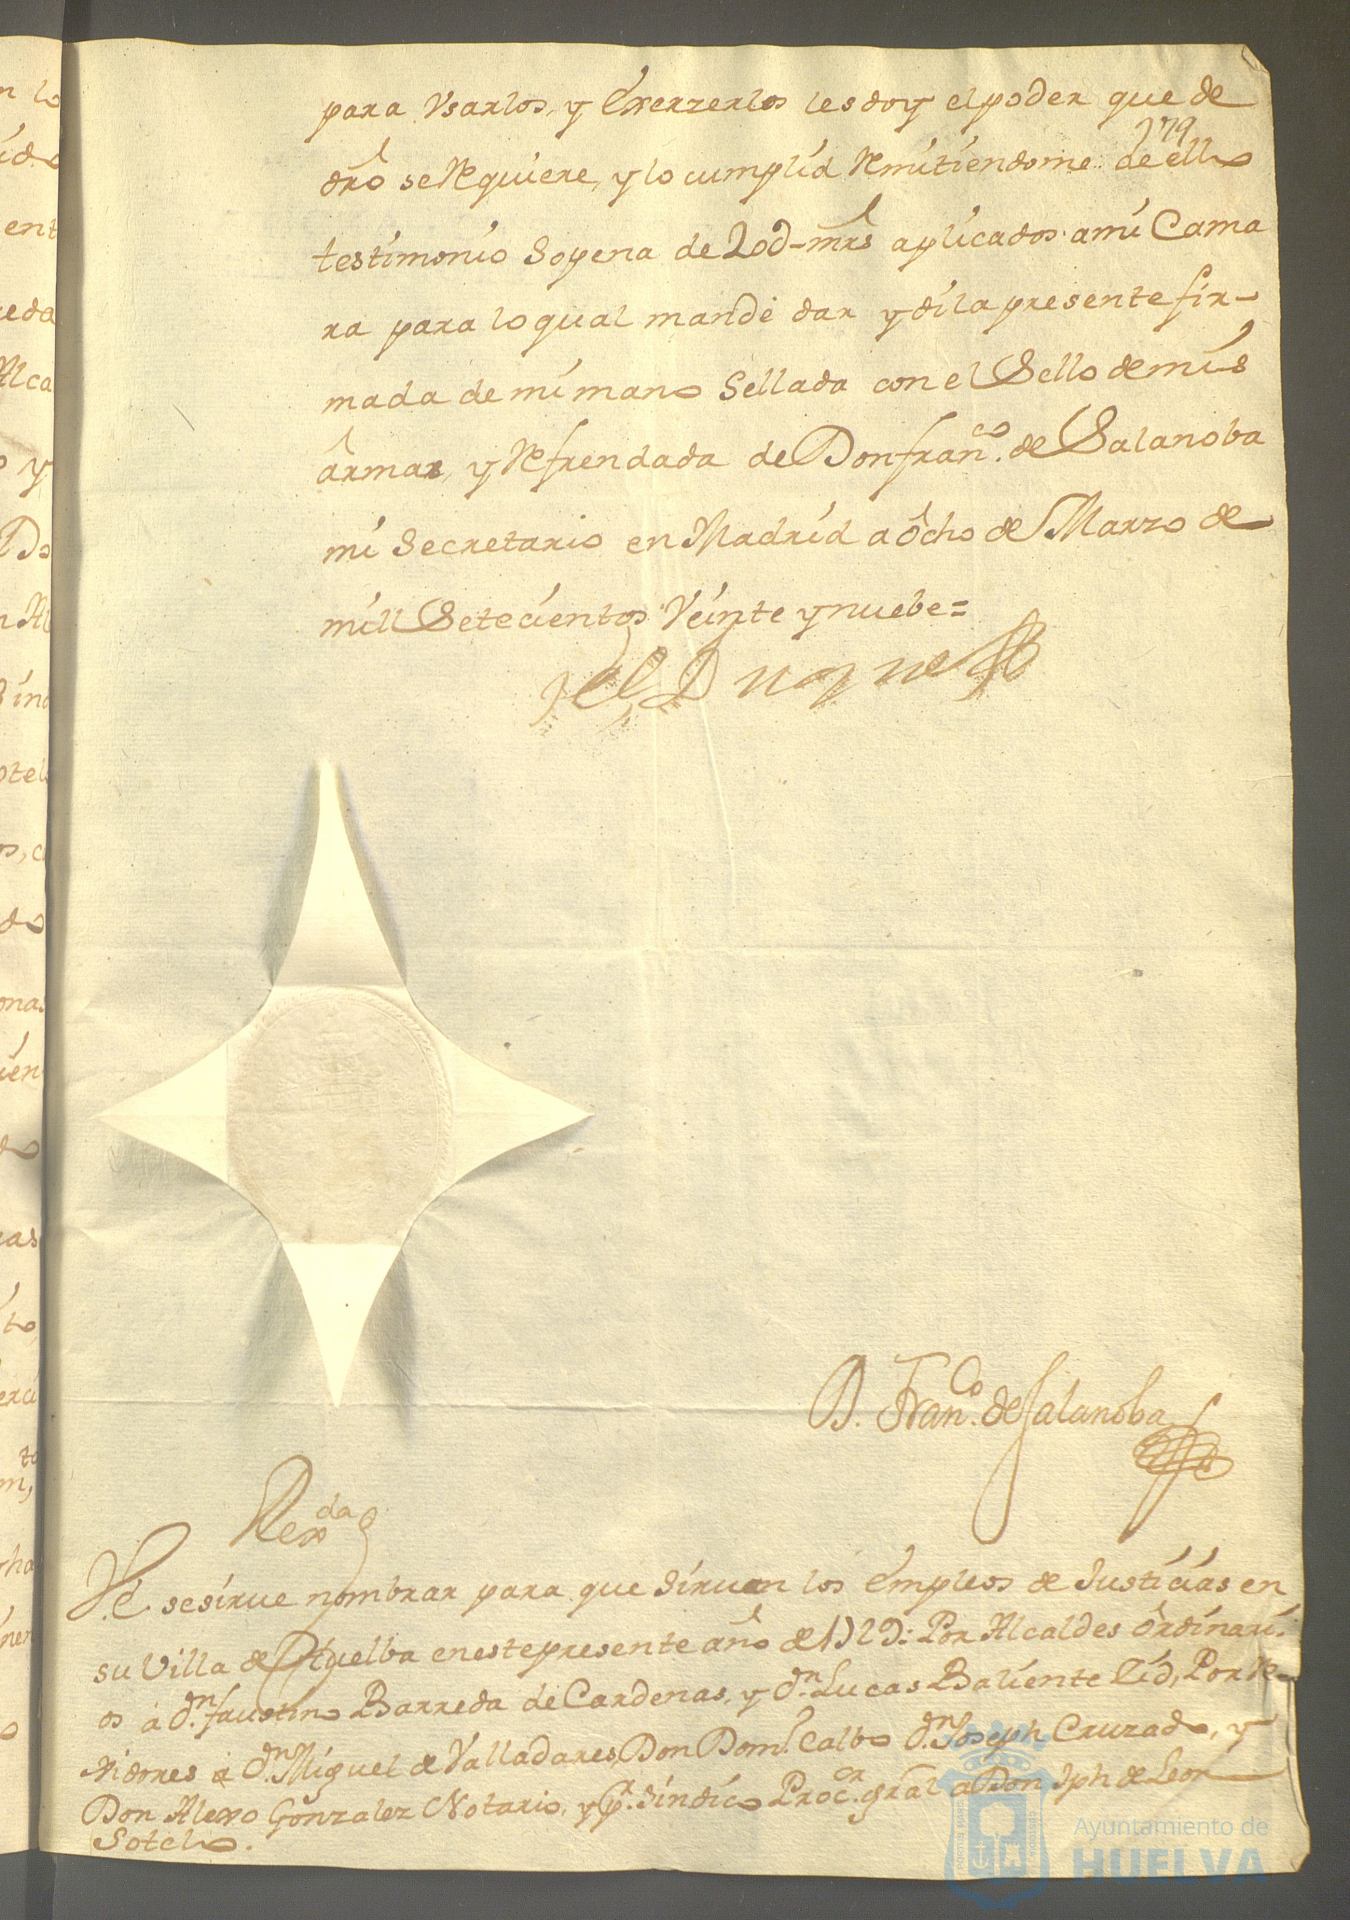 para Vsarlos, y Exerzerlos lesdoy elpoder que de
179
dr̃o seRequiere, ylo cumplid Remitiendome de ello
testimonio Sopena de 20d-mrs̃ aplicados ami Cama
ra para loqual mandè dar ydila presente fir-
mada de mi mano Sellada con el Sello de mis
ârmas, y Refrendada de Donfranco. de Salanoba
mi Secretario en Madrid a ôcho de Marzo de
mill Setecientos Veinte ynuebe=
el Duque
D. Franco. de Salanoba
Rexda
V.e. sesirue nombrar para que siruan los émpleos de Justicias en
su Villa de Huelba eneste presente año de 1729: Por Alcaldes ôrdinari-
os à dn. faustino Barreda de Cardenas, y dn. Lucas Baliente Cid, Por Re-
xidores à dn. Miguel de Valladares, Don Domo. Calbo dn. Joseph Cruzado, y
Don Alexo Gonzalez Notario, y pr. sindico Procor. gral a Don Jph de Leon
Sotelo.
Ayuntamiento de
HUELVA